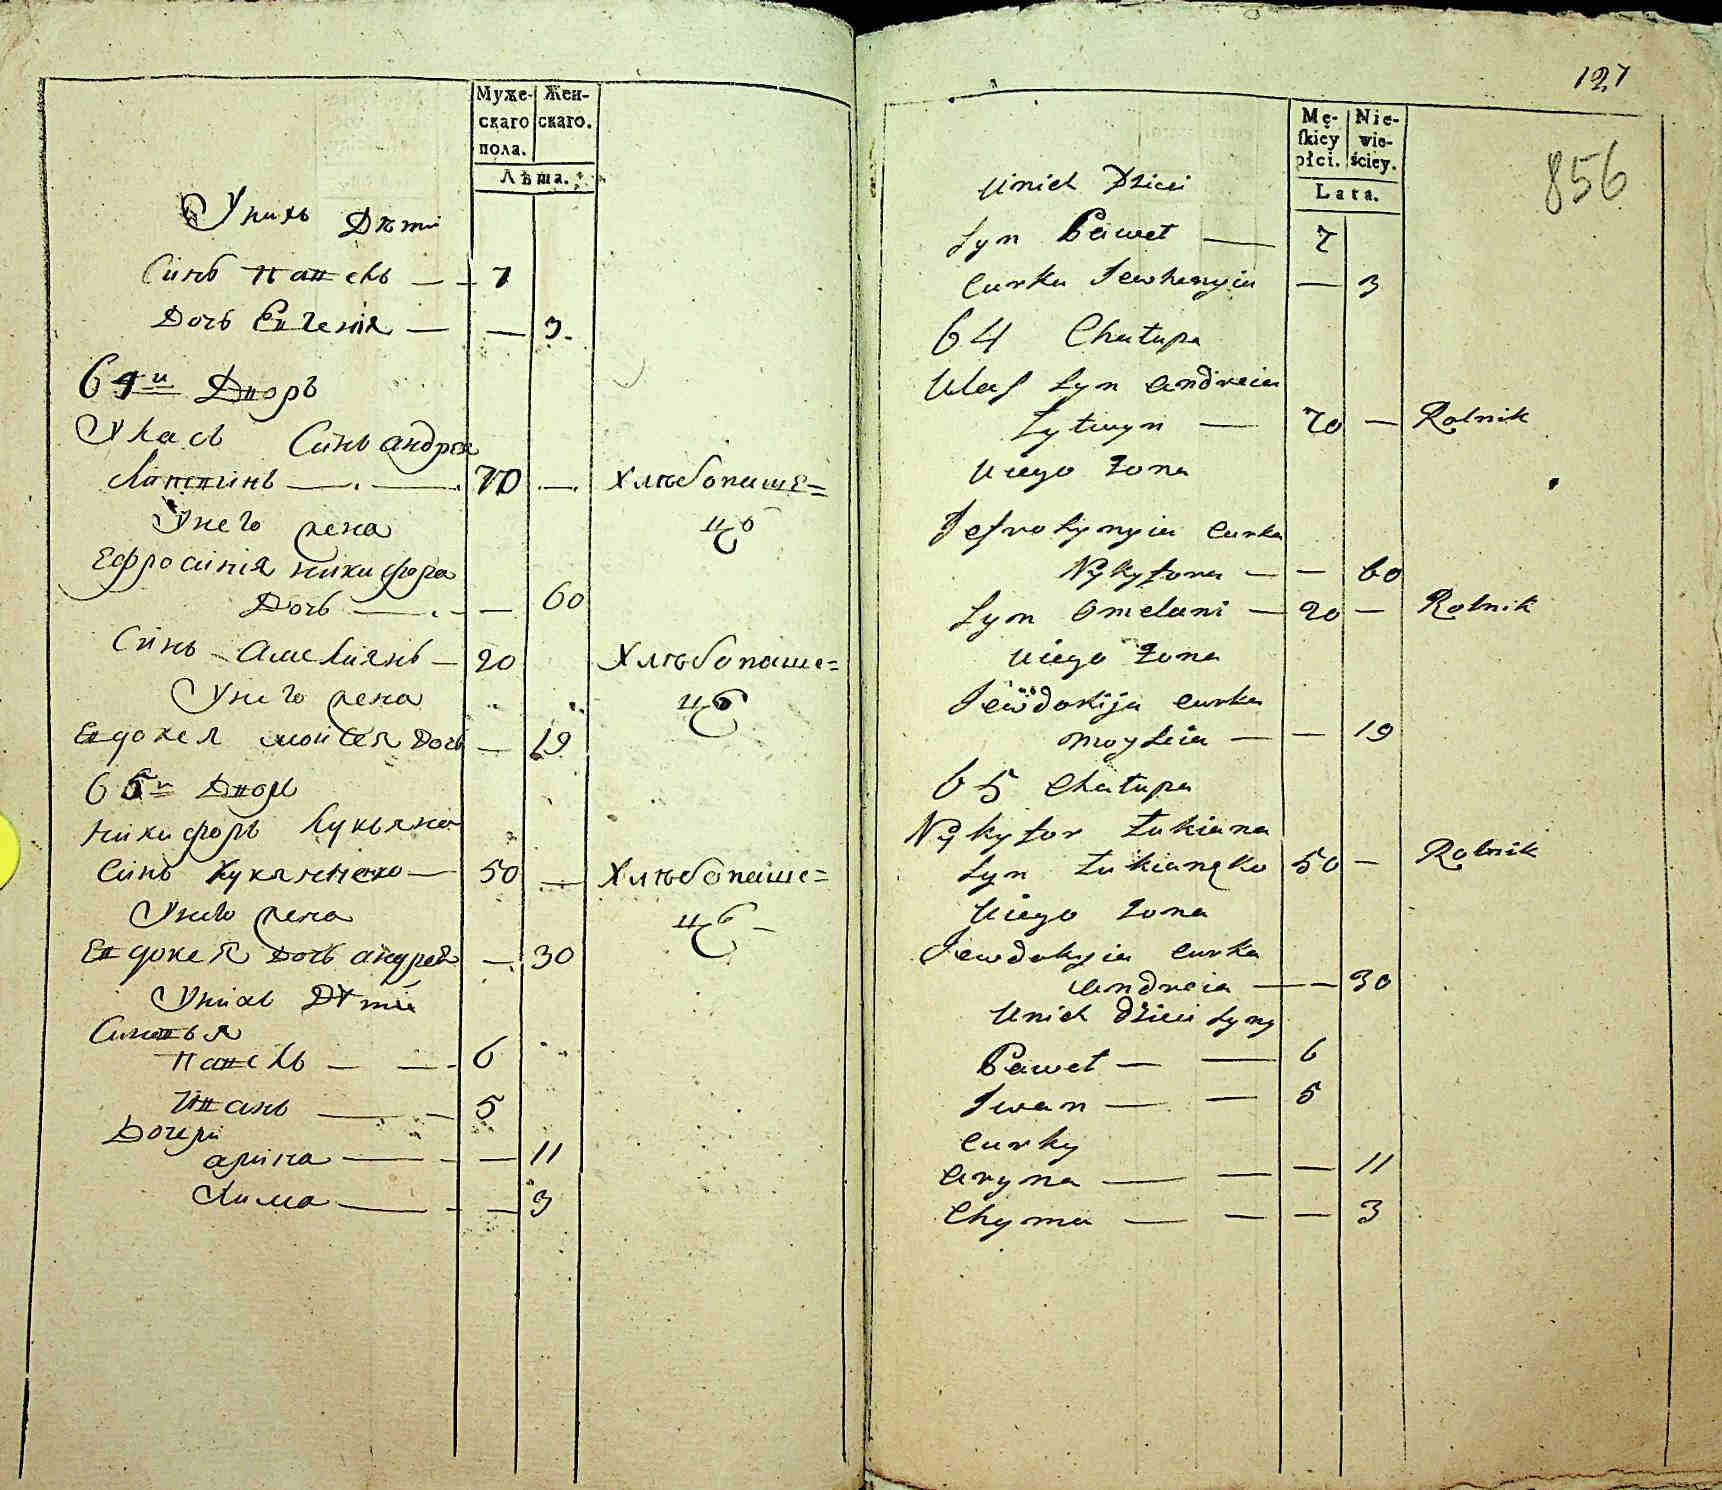 Муже-
скаго
пола.
Жен-
скаго.
Лѣта.
Унихъ Дѣти
Синъ Павелъ — 7
Дочь Евгенія — — 3.
64й Дворъ
Улась Синъ андрея
Литвинъ — 70 — Хлѣбопаше=
цъ
Унего жена
Ефросинія никифора
Дочь — — 60
Синъ Амелиянъ — 20 Хлѣбопаше=
цъ
Унего жена
Евдокея мойсея Дочь — 19
65й Дворъ
Никифоръ Лукьяна
Синъ Лукяненко — 50 — Хлѣбопаше=
цъ
Унего жена
Евдокея Дочь андрея — 30
Унихъ Дѣтей
Синовья
Павелъ — — 6
Иванъ — — 5
Дочери
арина — — 11
Хима — — 3
127
856
Mę-
skiey
płci.
Nie-
wie-
ściey.
Lata.
Unich Dzieci
Syn Paweł — 7
Curka Jewhenyia — 3
64 Chałupa
Ulas Syn andreia
Lytwyn — 70 — Rolnik
Uiego żona
Jefrosynyia curka
Nykyfora — — 60
Syn Omelani — 20 — Rolnik
Uiego żona
Jewdokija curka
moyseia — — 19
65 Chałupa
Nykyfor Łukiana
Syn Łukianęko 50 — Rolnik
Uiego żona
Jewdokyia curka
andreia — — 30
Unich dzieci syny
Paweł — — 6
Iwan — — 5
Curky
aryna — — — 11
Chyma — — — 3